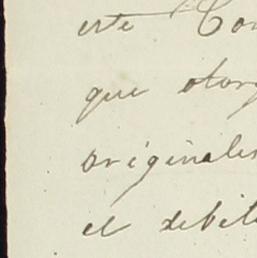 este Con
que otorg
originales
el debit